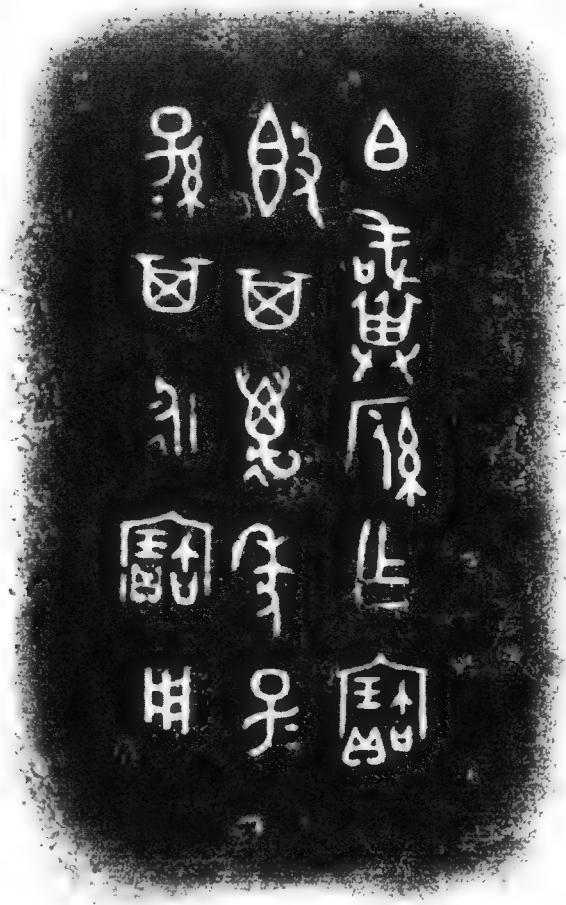 白乍寶
𣪘其萬年子=
孫=其永寶用